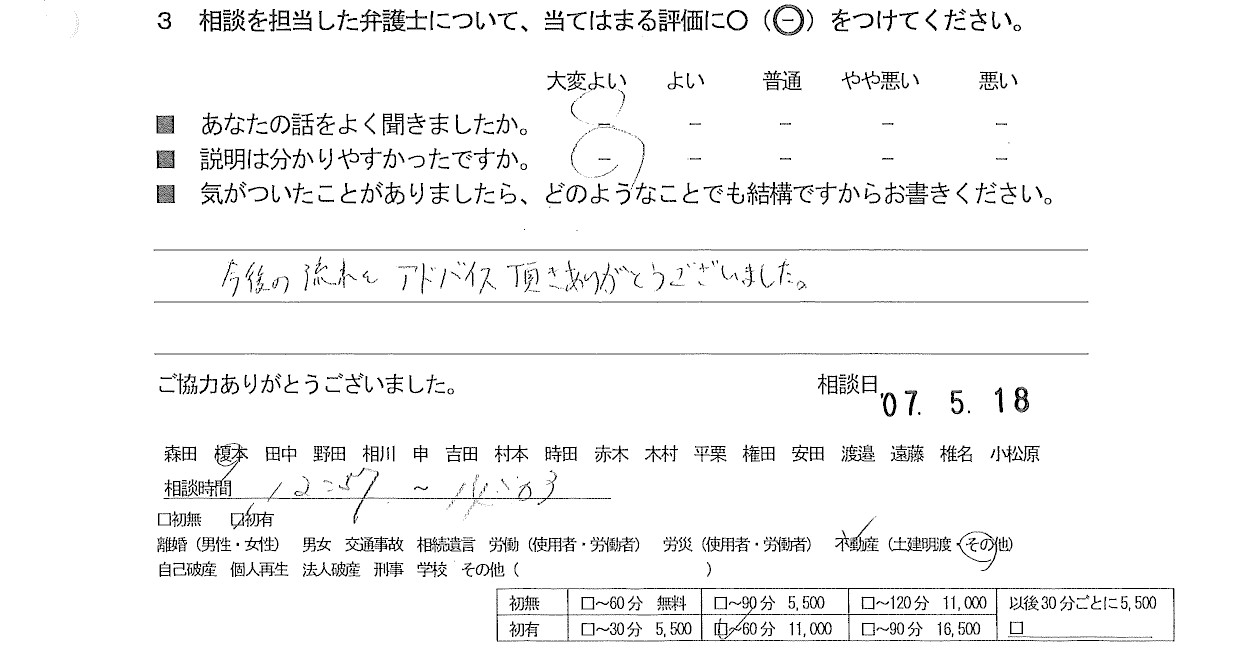 3 相談を担当した弁護士について、当てはまる評価に〇（㊀）をつけてください。
大変よい よい 普通 やや悪い 悪い
■ あなたの話をよく聞きましたか。 － － － － －
■ 説明は分かりやすかったですか。 － － － － －
■ 気がついたことがありましたら、どのようなことでも結構ですからお書きください。
今後の流れを アドバイス 頂きありがとうございました。
ご協力ありがとうございました。 相談日 '07. 5. 18
森田 榎本 田中 野田 相川 申 吉田 村本 時田 赤木 木村 平栗 権田 安田 渡邉 遠藤 椎名 小松原
相談時間 12:57 ～
□初無 □初有
離婚（男性・女性） 男女 交通事故 相続遺言 労働（使用者・労働者） 労災（使用者・労働者） 不動産（土建明渡・その他）
自己破産 個人再生 法人破産 刑事 学校 その他（ ）
初無 □～60分 無料 □～90分 5,500 □～120分 11,000 以後30分ごとに5,500
初有 □～30分 5,500 □～60分 11,000 □～90分 16,500 □